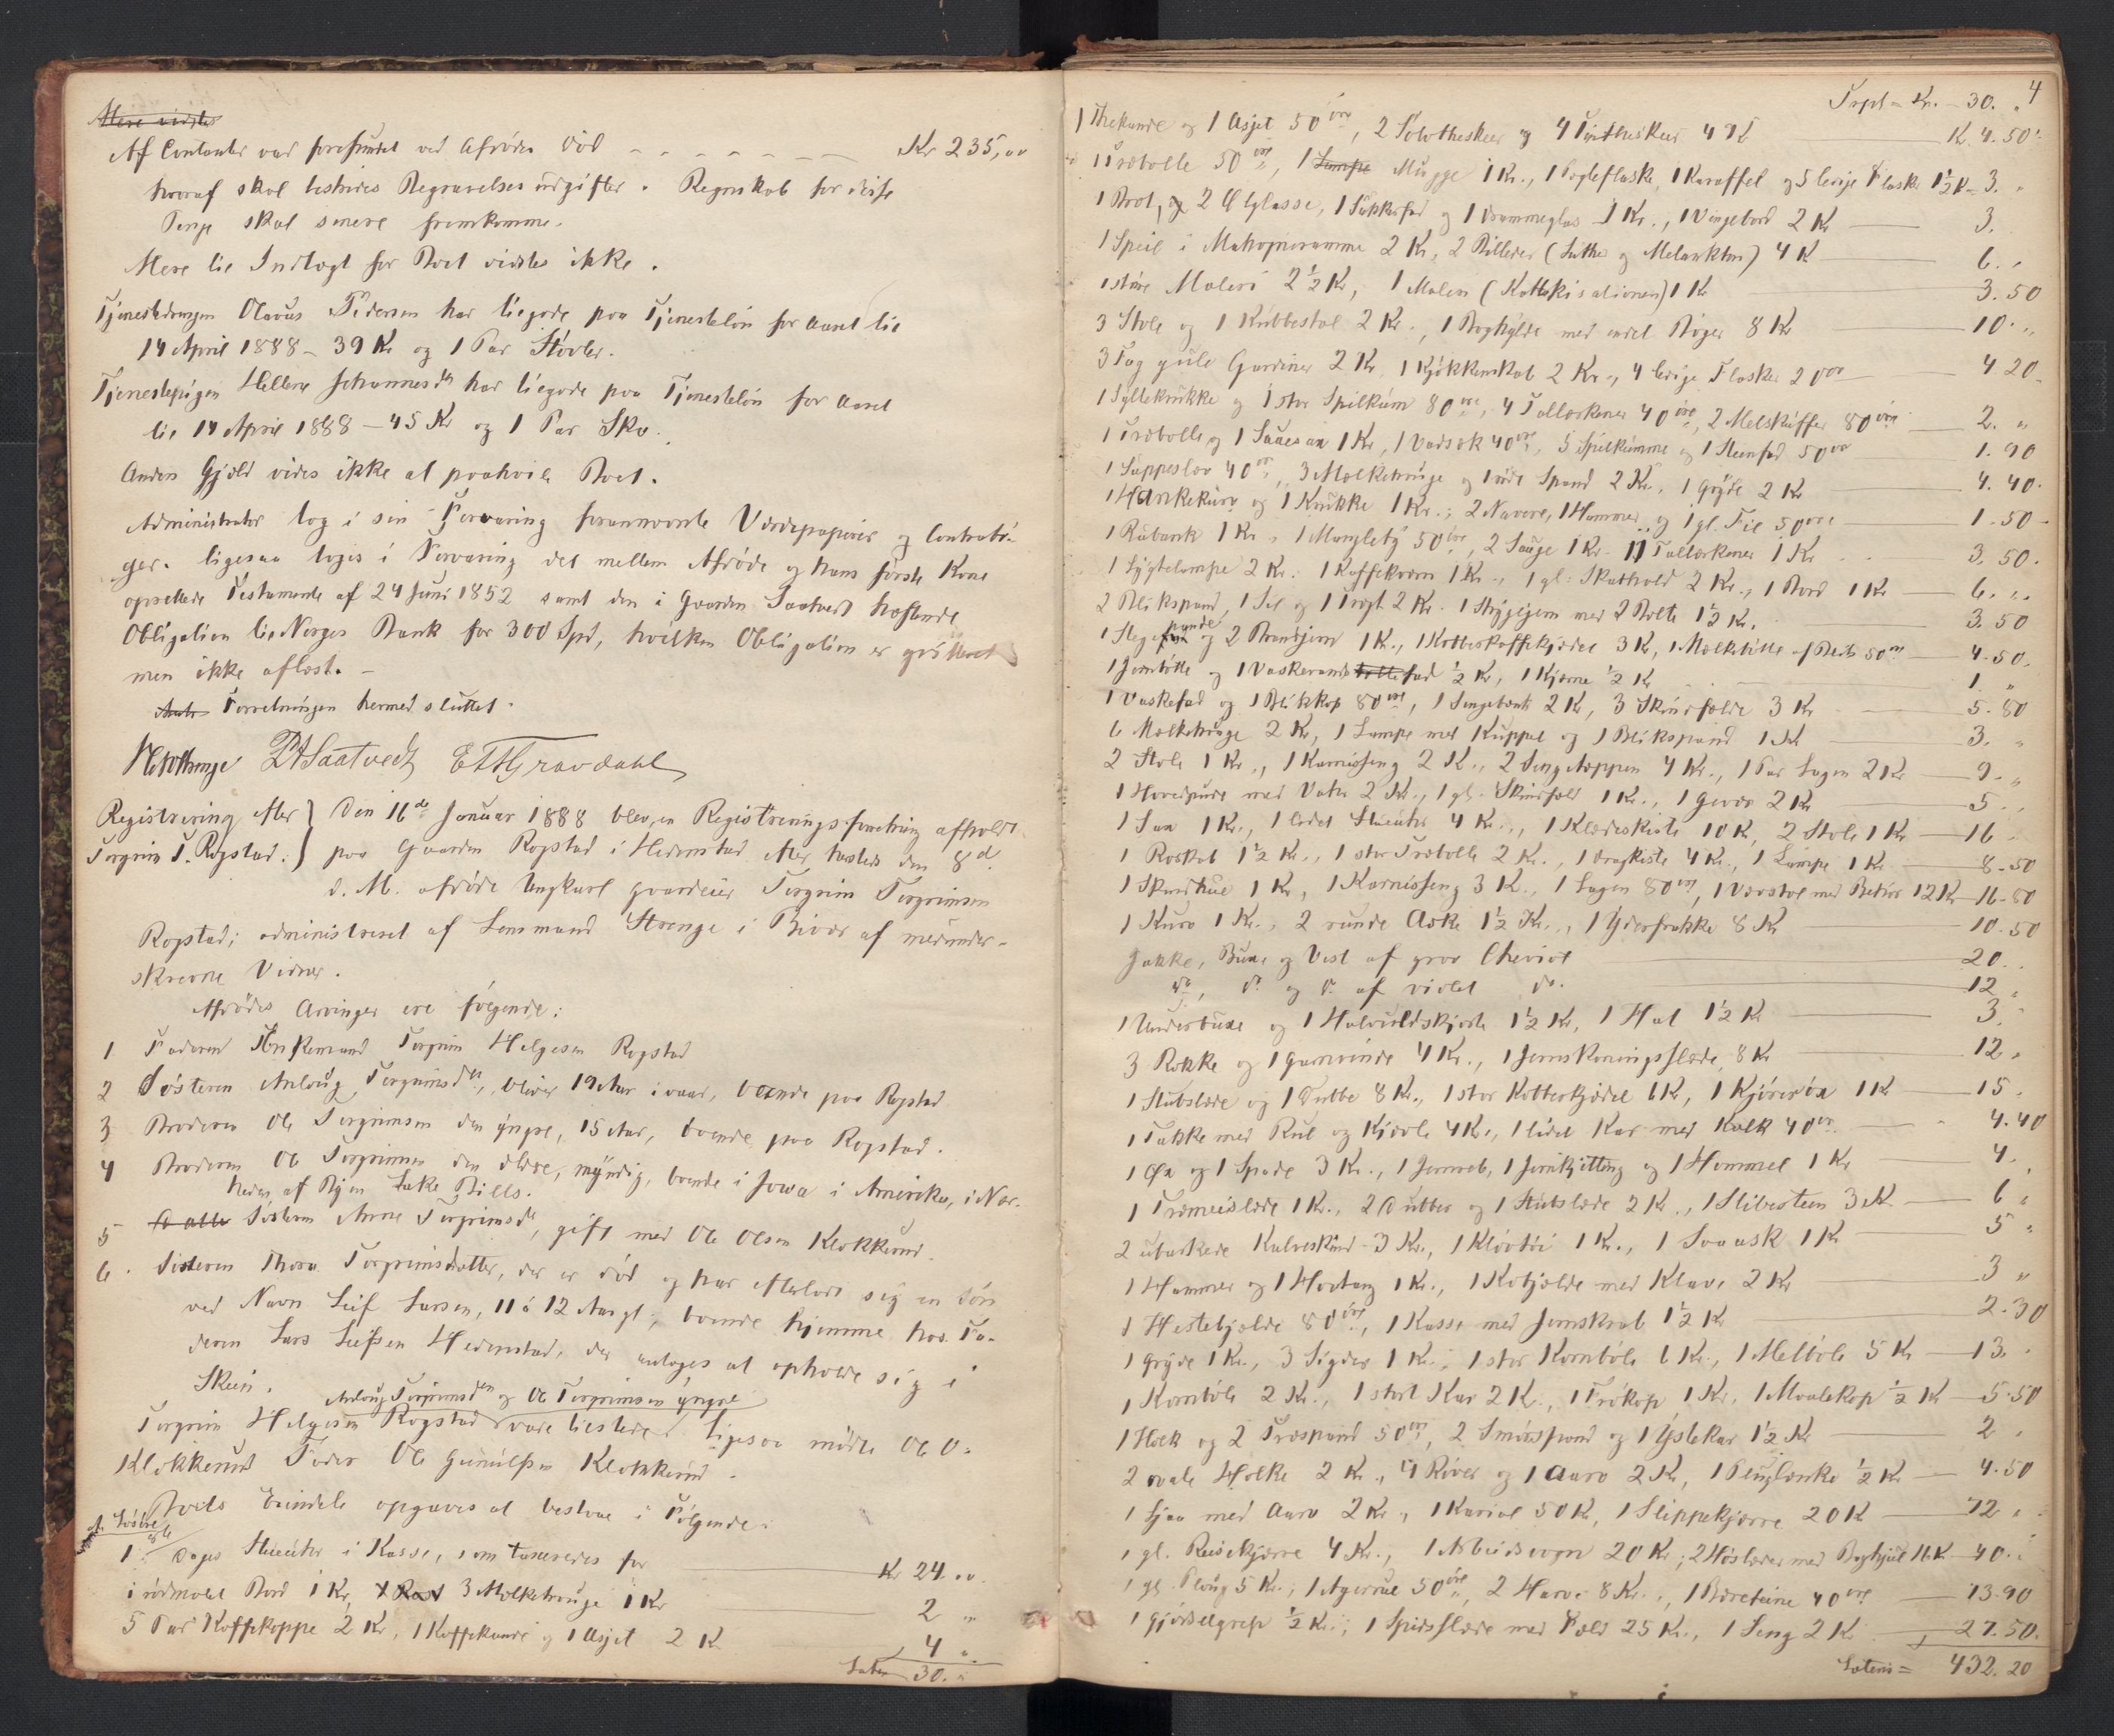 Mere vidstes
Af Contanter var forefundet ved Afdødes Død - - - - - - - Kr 235,00
hvoraf skal bestrides Begravelses udgifter. Regnskab for disse
Penge skal senere fremkomme.
Mere til Indtægt for Boet vidstes ikke.
Tjenestedrengen Olavus Pedersen har tilgode paa Tjenesteløn for Aaret til
14 April 1888 – 39 Kr og 1 Par Støvler.
Tjenestepigen Hellene Johannesdtr har tilgode paa Tjenesteløn for Aaret
til 14 April 1888 – 45 Kr og 1 Par Sko.
Anden Gjæld vides ikke at paahvile Boet.
Administrator tog i sin Forvaring forannævnte Værdipapirer og Contrabø-
ger. ligesaa toges i Forvaring det mellem Afdøde og hans første Kone
oprettede Testamente af 24 Juni 1852 samt den i Gaarden Saatvedt heftende
Obligation til Norges Bank for 300 Spd, hvilken Obligation er qvitteret
men ikke aflæst. –
Forretningen hermed sluttet.
PASaatvedt ETHGravdahl
Registrering efter } Den 16de Januar 1888 blev en Registreringsforretning afholdt
Torgrim T. Rogstad. } paa Gaarden Rogstad i Hedenstad efter den 8d
d. M. afdøde Ungkarl gaardeier Torgrim Torgrimsen
Rogstad; administreret af Lensmand Strenge i af medunder-
skrevne Vidner.
Afdødes Arvinger ere følgende:
1 Faderen Enkemand Torgrim Helgesen Rogstad
2 Søsteren Anlaug Torgrimsdtr, bliver 19 Aar i vaar, boende paa Rogstad
3 Broderen Ole Torgrimsen den yngre, 15 Aar, boende paa Rogstad.
4 Broderen Ole Torgrimsen den ældre, myndig, boende i Jowa i Amerika, i Nær-
heden af Byen Lake Mills.
5 Søsteren Anne Torgrimsdtr, gift med Ole Olsen Klokkerud
6. Søsteren Thora Torgrimsdatter, der er død og har efterladt sig en Søn
ved Navn Leif Larsen, 11 à 12 Aar gl, boende hjemme hos Fa-
deren Lars Leifsen Hedenstad, der antages at opholde sig i
Skien.
Anlaug Torgrimsdtr og Ole Torgrimsen yngre
Torgrim Helgesen Rogstad vare tilstede. Ligesaa mødte Ole O.
Klokkeruds Fader Ole Gunulfsen Klokkerud.
Boets Eiendele opgaves at bestaae i Følgende:
A. Løsøre
1. Dages Stueuhr i Kasse, som taxeredes for Kr 24.00
1 rødmalet Bord 1 Kr, 3 Melketruge 1 Kr 2 "
5 Par Kaffekoppe 2 Kr, 1 Kaffekande og 1 Asjet 2 Kr 4 "
Latus 30. "
4
Trspt = Kr. – 30. "
1 Thekande og 1 Asjet 50 øre, 2 Sølvtheskeer og 4 Tintheskeer 4 Kr Kr 4.50
1 Træbolle 50 øre, 1 Lampe Mugge 1 Kr., 1 Lægleflaske, 1 Karaffel og 5 ledige Flasker 1½ Kr 3. "
1 Brot, og 2 Ølglasse, 1 Sukkerfad og 1 Drammeglas 1 Kr., 1 Vingebord 2 Kr 3.
1 Speil i Mahogniramme 2 Kr, 2 Billeder (Luther og Melankton) 4 Kr 6. "
1 større Maleri 2½ Kr, 1 Maleri (Kattekisationen) 1 Kr 3.50
3 Stole og 1 Krubbestol 2 Kr., 1 Boghylde med endel Bøger 8 Kr 10. "
3 Fag gule Gardiner 2 Kr, 1 Kjøkkenskab 2 Kr., 4 ledige Flasker 20 øre 4 20
1 Syltekrukke og 1 stor Spilkum 80 øre, 4 Tallerkener 40 øre, 2 Melskuffer 80 øre 2. "
1 Træbolle og 1 Saaesax 1 Kr, 1 Vadsæk 40 øre, 5 Spilkumme og 1 Steenfad 50 øre 1.90
1 Suppeslev 40 øre, 3 Melketruge og 1 Spand 2 Kr. 1 Gryde 2 Kr 4.40
1 Hankekurv og 1 Krukke 1 Kr.; 2 Navere, 1 Hammer og 1 gl. Fil 50 øre 1.50
1 Rubank 1 Kr, 1 Mangletøj 50 øre, 2 Sauge 1 Kr. 11 Tallerkener 1 Kr 3.50
1 Lygtelampe 2 Kr. 1 Kaffekværn 1 Kr., 1 gl. Skathold 2 Kr., 1 Bord 1 Kr 6. "
2 Blikspand, 1 Sil og 1 Tragt 2 Kr. 1 Strygejern med 2 Bolte 1½ Kr. 3.50
1 Stegepande og 2 Brandjern 1 Kr., 1 Kobberkaffekjedel 3 Kr, 1 Melkebøtte af Blik 50 øre 4.50
1 Jernbøtte og 1 Vaskevandsfad ½ Kr, 1 Kjerne ½ Kr 1. "
1 Vaskefad og 1 Blikkop 80 øre, 1 Sengebænk 2 Kr, 3 Skindfælde 3 Kr 5.80
6 Melketruge 2 Kr, 1 Lampe med Kuppel og 1 Blikspand 1 Kr 3. "
2 Stole 1 Kr., 1 Karnisseng 2 Kr., 2 Sengetæppen 4 Kr., 1 Par Lagen 2 Kr 9. "
1 Hovedpude med Vatn 2 Kr., 1 gl. Skindfæld 1 Kr., 1 Gevær 2 Kr 5. "
1 Sax 1 Kr., 1 lidet Stueuhr 4 Kr., 1 Klædeskiste 10 Kr, 2 Stole 1 Kr 16
1 Roskab 1½ Kr., 1 stor Træbolle 2 Kr., 1 dragkiste 4 Kr., 1 Lampe 1 Kr 8.50
1 Skindhue 1 Kr, 1 Karnisseng 3 Kr., 1 Lagen 80 øre, 1 Vævstol med Behør 12 Kr 16.80
1 Kurv 1 Kr., 2 runde Æske 1½ Kr., 1 Yderfrakke 8 Kr 10.50
Jakke, Buxe og Vest af grov Cheviot 20.
do, do og do af violet do. 12 "
1 Underbuxe og 1 Halvuldskjorte 1½ Kr, 1 Hat 1½ Kr 3.
3 Rokke og 1 Garnvinde 4 Kr., 1 Jernskoningsslæde 8 Kr 12 "
1 Stutslæde og 1 Dubbe 8 Kr., 1 stor Kobberkjedel 6 Kr, 1 Kjørerøx 1 Kr 15.
1 Takke med Rul og Kjævle 4 Kr., 1 lidet Kar med Kalk 40 øre. 4.40
1 Øx og 1 Spade 3 Kr., 1 Jernreb, 1 Jernkjetting og 1 Hammel 1 Kr 4.
1 Træmeislæde 1 Kr., 2 Dubber og 1 Stutslæde 2 Kr., 1 Slibesteen 3 Kr 6 "
2 ubarkede Kalveskind 3 Kr., 1 Kløvtøi 1 Kr., 1 Saaask 1 Kr 5 "
1 Hammer og 1 Hovtang 1 Kr., 1 Kobjælde med Klave 2 Kr 3 "
1 Hestebjælde 80 øre, 1 Kasse med Jernskrab 1½ Kr 2.30
1 Gryde 1 Kr., 3 Sigder 1 Kr., 1 stor Kornbøle 6 Kr., 1 Melbøle 5 Kr 13. "
1 Kornbøle 2 Kr., 1 stort Kar 2 Kr., 1 Frøkop 1 Kr, 1 Maalekop ½ Kr 5.50
1 Holk og 2 Træspand 50 øre, 2 Smørspand og 1 Ystekar 1½ Kr 2 "
2 ovale Holke 2 Kr., 4 River og 1 Aarv 2 Kr, 1 Pluglænke ½ Kr 4.50
1 Ljaa med Aarv 2 Kr, 1 Kariol 50 Kr, 1 Slippekjærre 20 Kr 72 "
1 gl. Reisekjærre 4 Kr., 1 Arbeidsvogn 20 Kr; 2 Høslæder med Baghjul 16 Kr 40. "
1 gl. Ploug 5 Kr., 1 Agerrul 50 øre, 2 Harve 8 Kr., 1 Bæreteine 40 øre 13.90
1 Gjødselgrep ½ Kr., 1 Spidsslæde med Fæld 25 Kr., 1 Seng 2 Kr 27.50
Lateris = 432.20